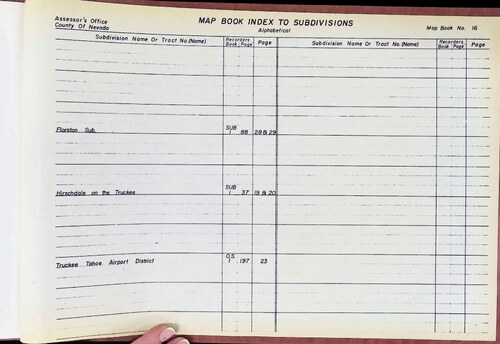 Assessor's Office
County Of Nevada
MAP BOOK INDEX TO SUBDIVISIONS
Alphabetical
Map Book No. 16
Subdivision Name Or Tract No.(Name) Recorders Book Page Page Subdivision Name Or Tract No.(Name) Recorders Book Page Page
Floriston Sub. SUB 1 88 28 & 29
Hirschdale on the Truckee SUB 1 37 19 & 20
Truckee Tahoe Airport District O.S. 1 197 23